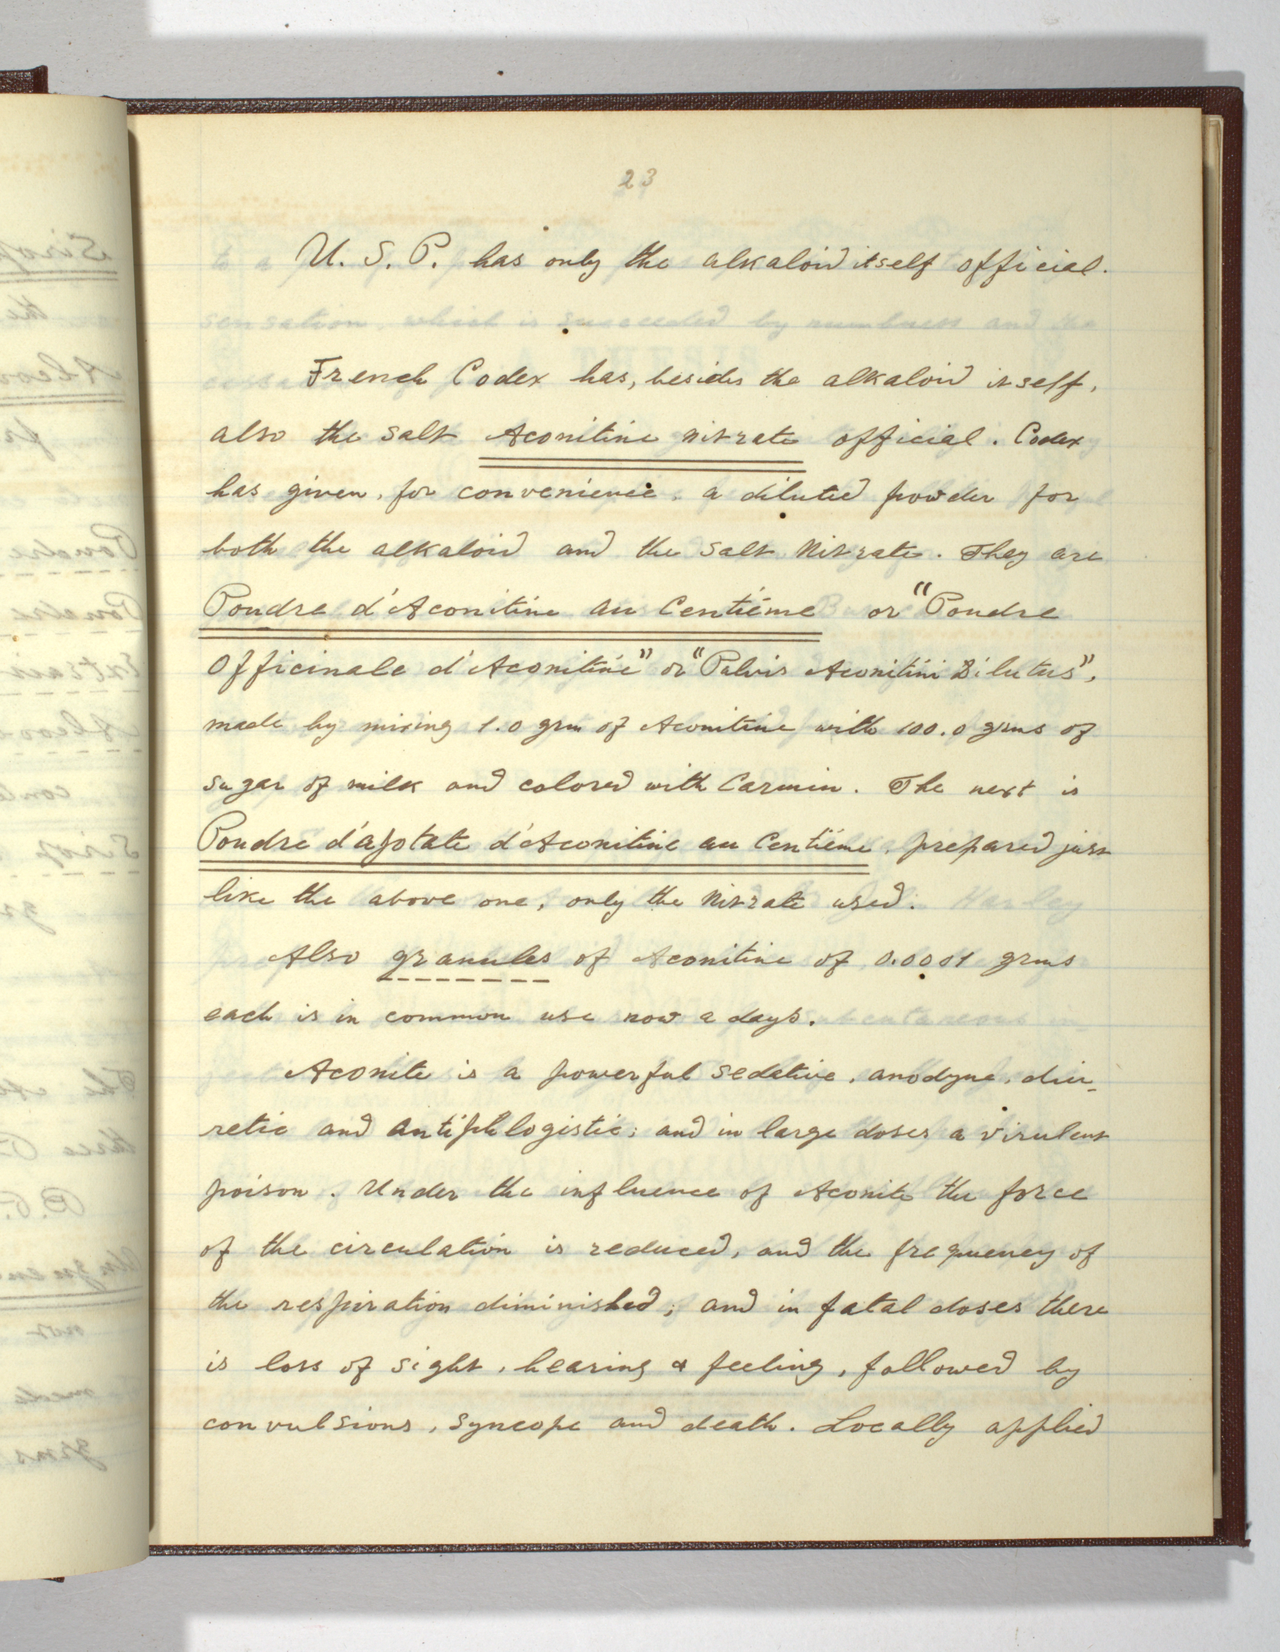 23
U. S. P. has only the alkaloid itself official.
French Codex has, besides the alkaloid itself,
also the salt Aconitine nitrate official. Codex
has given, for convenience, a diluted powder for
both the alkaloid and the salt Nitrate. They are
Poudre d'Aconitine au Centiéme or "Poudre
Officinale d'Aconitine" or "Pulvis Aconitini Dilutus",
made by mixing 1.0 grm of Aconitine with 100.0 grms of
sugar of milk and colored with Carmin. The next is
Poudre d'azotate d'Aconitine au Centiéme, prepared just
like the above one, only the Nitrate used.
Also granules of Aconitine of 0.0001 grms
each is in common use now a days.
Aconite is a powerful sedative, anodyne, diu-
retic and antiphlogistic; and in large doses a virulent
poison. Under the influence of Aconite the force
of the circulation is reduced, and the frequency of
the respiration diminished; and in fatal doses there
is loss of sight, hearing & feeling, followed by
convulsions, syncope and death. Locally applied